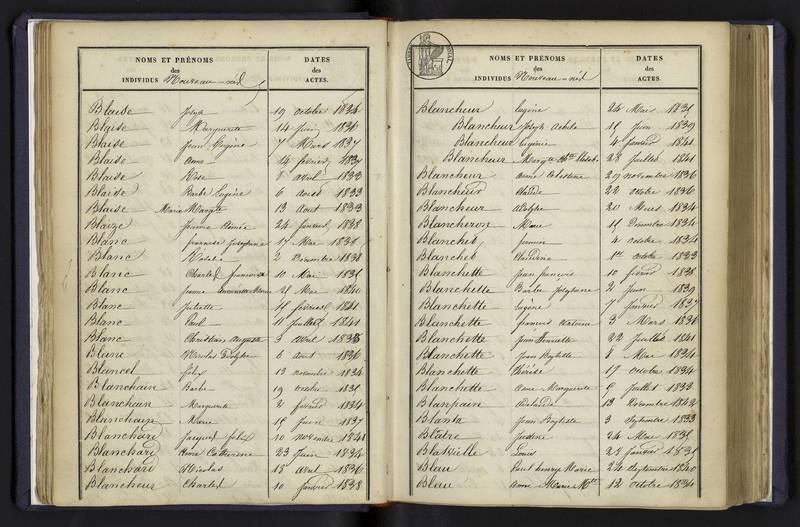 NOMS ET PRÉNOMS
des
INDIVIDUS Nouveau-né
DATES
des
ACTES.
Blaise Joseph 19 octobre 1834
Blaise Marguerite 14 Juin 1836
Blaise Jean Eugène 7 Mars 1837
Blaise Anna 14 février 1837
Blaise Rose 8 avril 1833
Blaise Barbe Eugène 6 1833
Blaise Maria Margte 13 Aout 1833
Blaize Jeanne Aimée 24 Janvier 1838
Blanc Josephine 17 Mai 1831
Blanc Rosalie 2 Décembre 1838
Blanc Charles François 10 Mai 1831
Blanc Jeanne 21 Mai 1840
Blanc Juliette 11 février 1841
Blanc Paul 11 Juillet 1841
Blanc Christian Auguste 3 avril 1838
Blanc Nicolas 6 aout 1836
Blancel félix 13 novembre 1834
Blanchain Barbe 19 octobre 1831
Blanchain Marguerite 2 février 1834
Blanchain Marie 19 Juin 1837
Blanchard Jacques félix 10 novembre 1841
Blanchard Catherine 23 Juin 1834
Blanchard Nicolas 18 avril 1836
Blancheur Charles 10 Janvier 1838
NOMS ET PRÉNOMS
des
INDIVIDUS Nouveau-né
DATES
des
ACTES.
Blancheur Eugène 24 Mai 1831
Blancheur Joseph Achille 19 Juin 1839
Blancheur Eugénie 4 Janvier 1841
Blancheur Margte 28 Juillet 1841
Blancheur Anne Célestine 29 novembre 1836
Blancheur Clotilde 22 octobre 1836
Blancheur Adolphe 20 Mars 1834
Blancheron Marie 19 Décembre 1834
Blanchet 4 octobre 1834
Blanchet 1er octobre 1833
Blanchette Jean françois 10 février 1838
Blanchette Barbe Josephine 2 Juin 1839
Blanchette Eugène 7 Janvier 1837
Blanchette françois Antoine 3 Mars 1836
Blanchette Jean 22 Juillet 1841
Blanchette Jean Baptiste 8 Mai 1834
Blanchette Thérèse 17 octobre 1834
Blanchette Anne Marguerite 9 Juillet 1833
Blanpain 13 Décembre 1842
Blanta Jean Baptiste 3 Septembre 1833
Blaire Justine 24 Mai 1831
Louis 22 Janvier 1831
Blau Paul henry Marie 24 Septembre 1840
Blau Anne Marie 12 octobre 1834